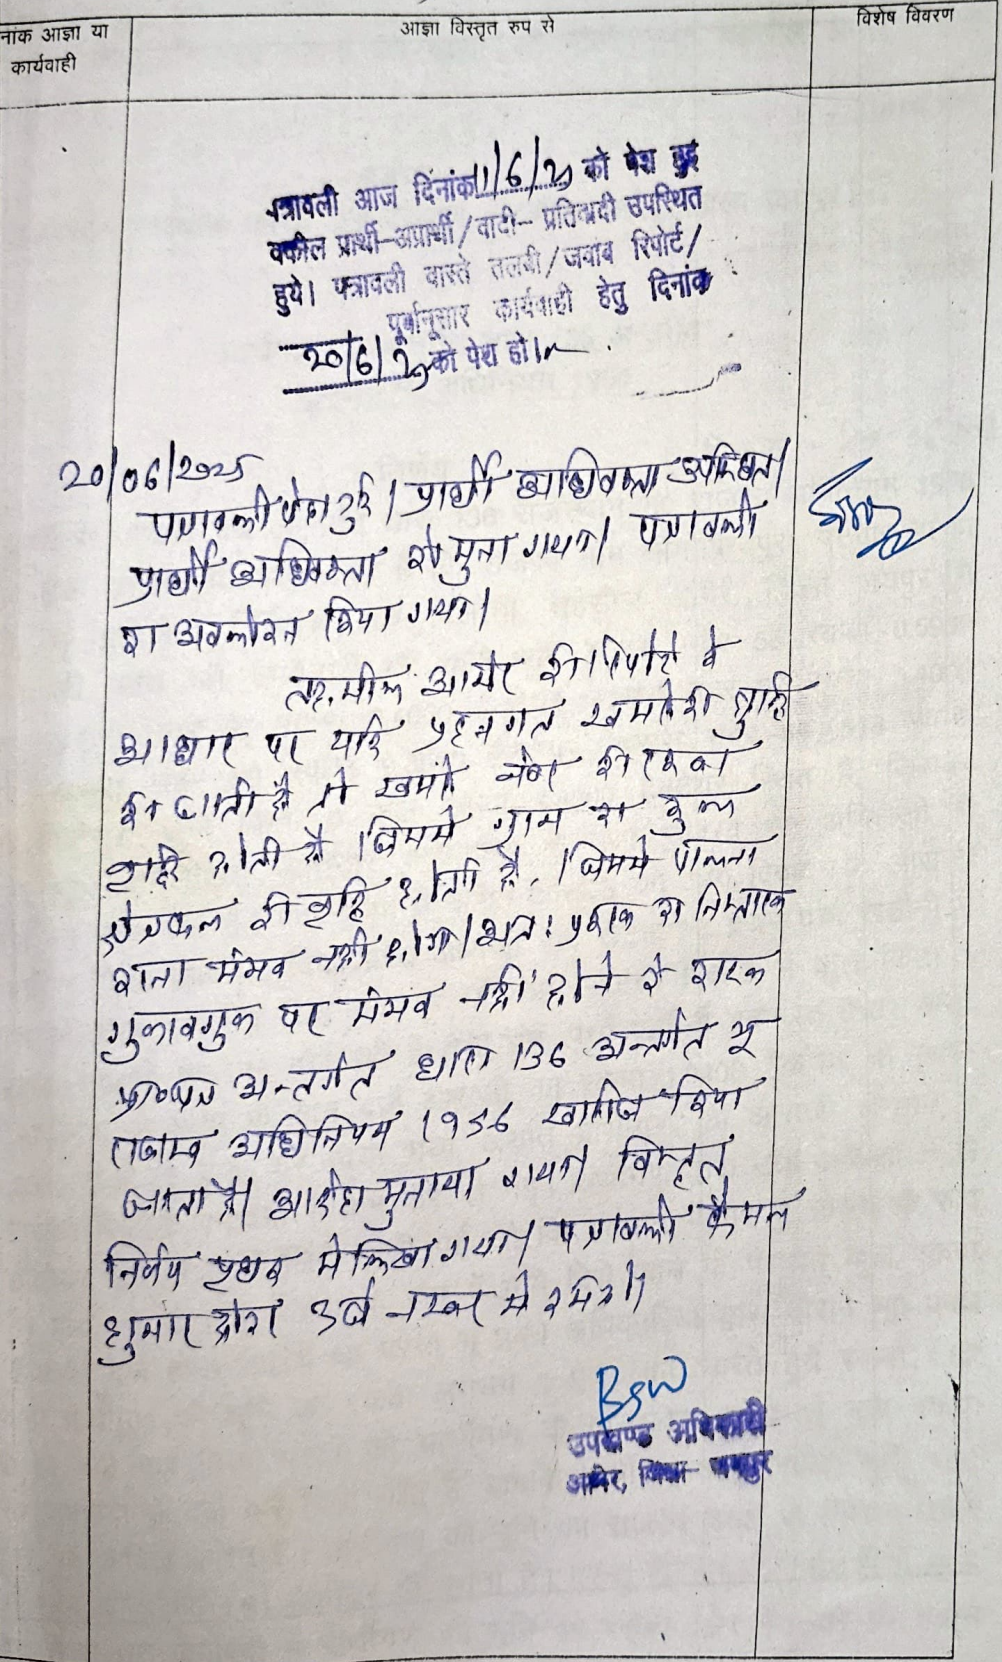 नांक आज्ञा या
कार्यवाही
आज्ञा विस्तृत रुप से
विशेष विवरण
पत्रावली आज दिनांक 11/6/25 को पेश हुई
वकील प्रार्थी-अप्रार्थी/वादी- प्रतिवादी उपस्थित
हुये। पत्रावली वास्ते तलबी/जवाब रिपोर्ट/
पूर्वानुसार कार्यवाही हेतु दिनांक
20/6/25 को पेश हो।
20/06/2025
पत्रावली पेश हुई। प्रार्थी अधिवक्ता उपस्थित।
प्रार्थी अधिवक्ता को सुना गया। पत्रावली
का अवलोकन किया गया।
तहसील आमेर की रिपोर्ट के
आधार पर यदि प्रश्नगत खसरे की शुद्धि
की जाती है तो खसरा नंबर की रकबा
वृद्धि होती है जिससे ग्राम का कुल
क्षेत्रफल की वृद्धि होती है, जिसमें पालना
होना संभव नहीं होगा। अतः प्रकरण का निस्तारण
गुणावगुण पर संभव नहीं होने के कारण
प्रार्थना पत्र अन्तर्गत धारा 136 अन्तर्गत भू
राजस्व अधिनियम 1956 खारिज किया
जाता है। आदेश सुनाया गया। विस्तृत
निर्णय पृथक से लिखा गया। पत्रावली फैसल
शुमार होकर दर्ज नम्बर से कम हो।
उपखण्ड अधिकारी
आमेर, जिला जयपुर